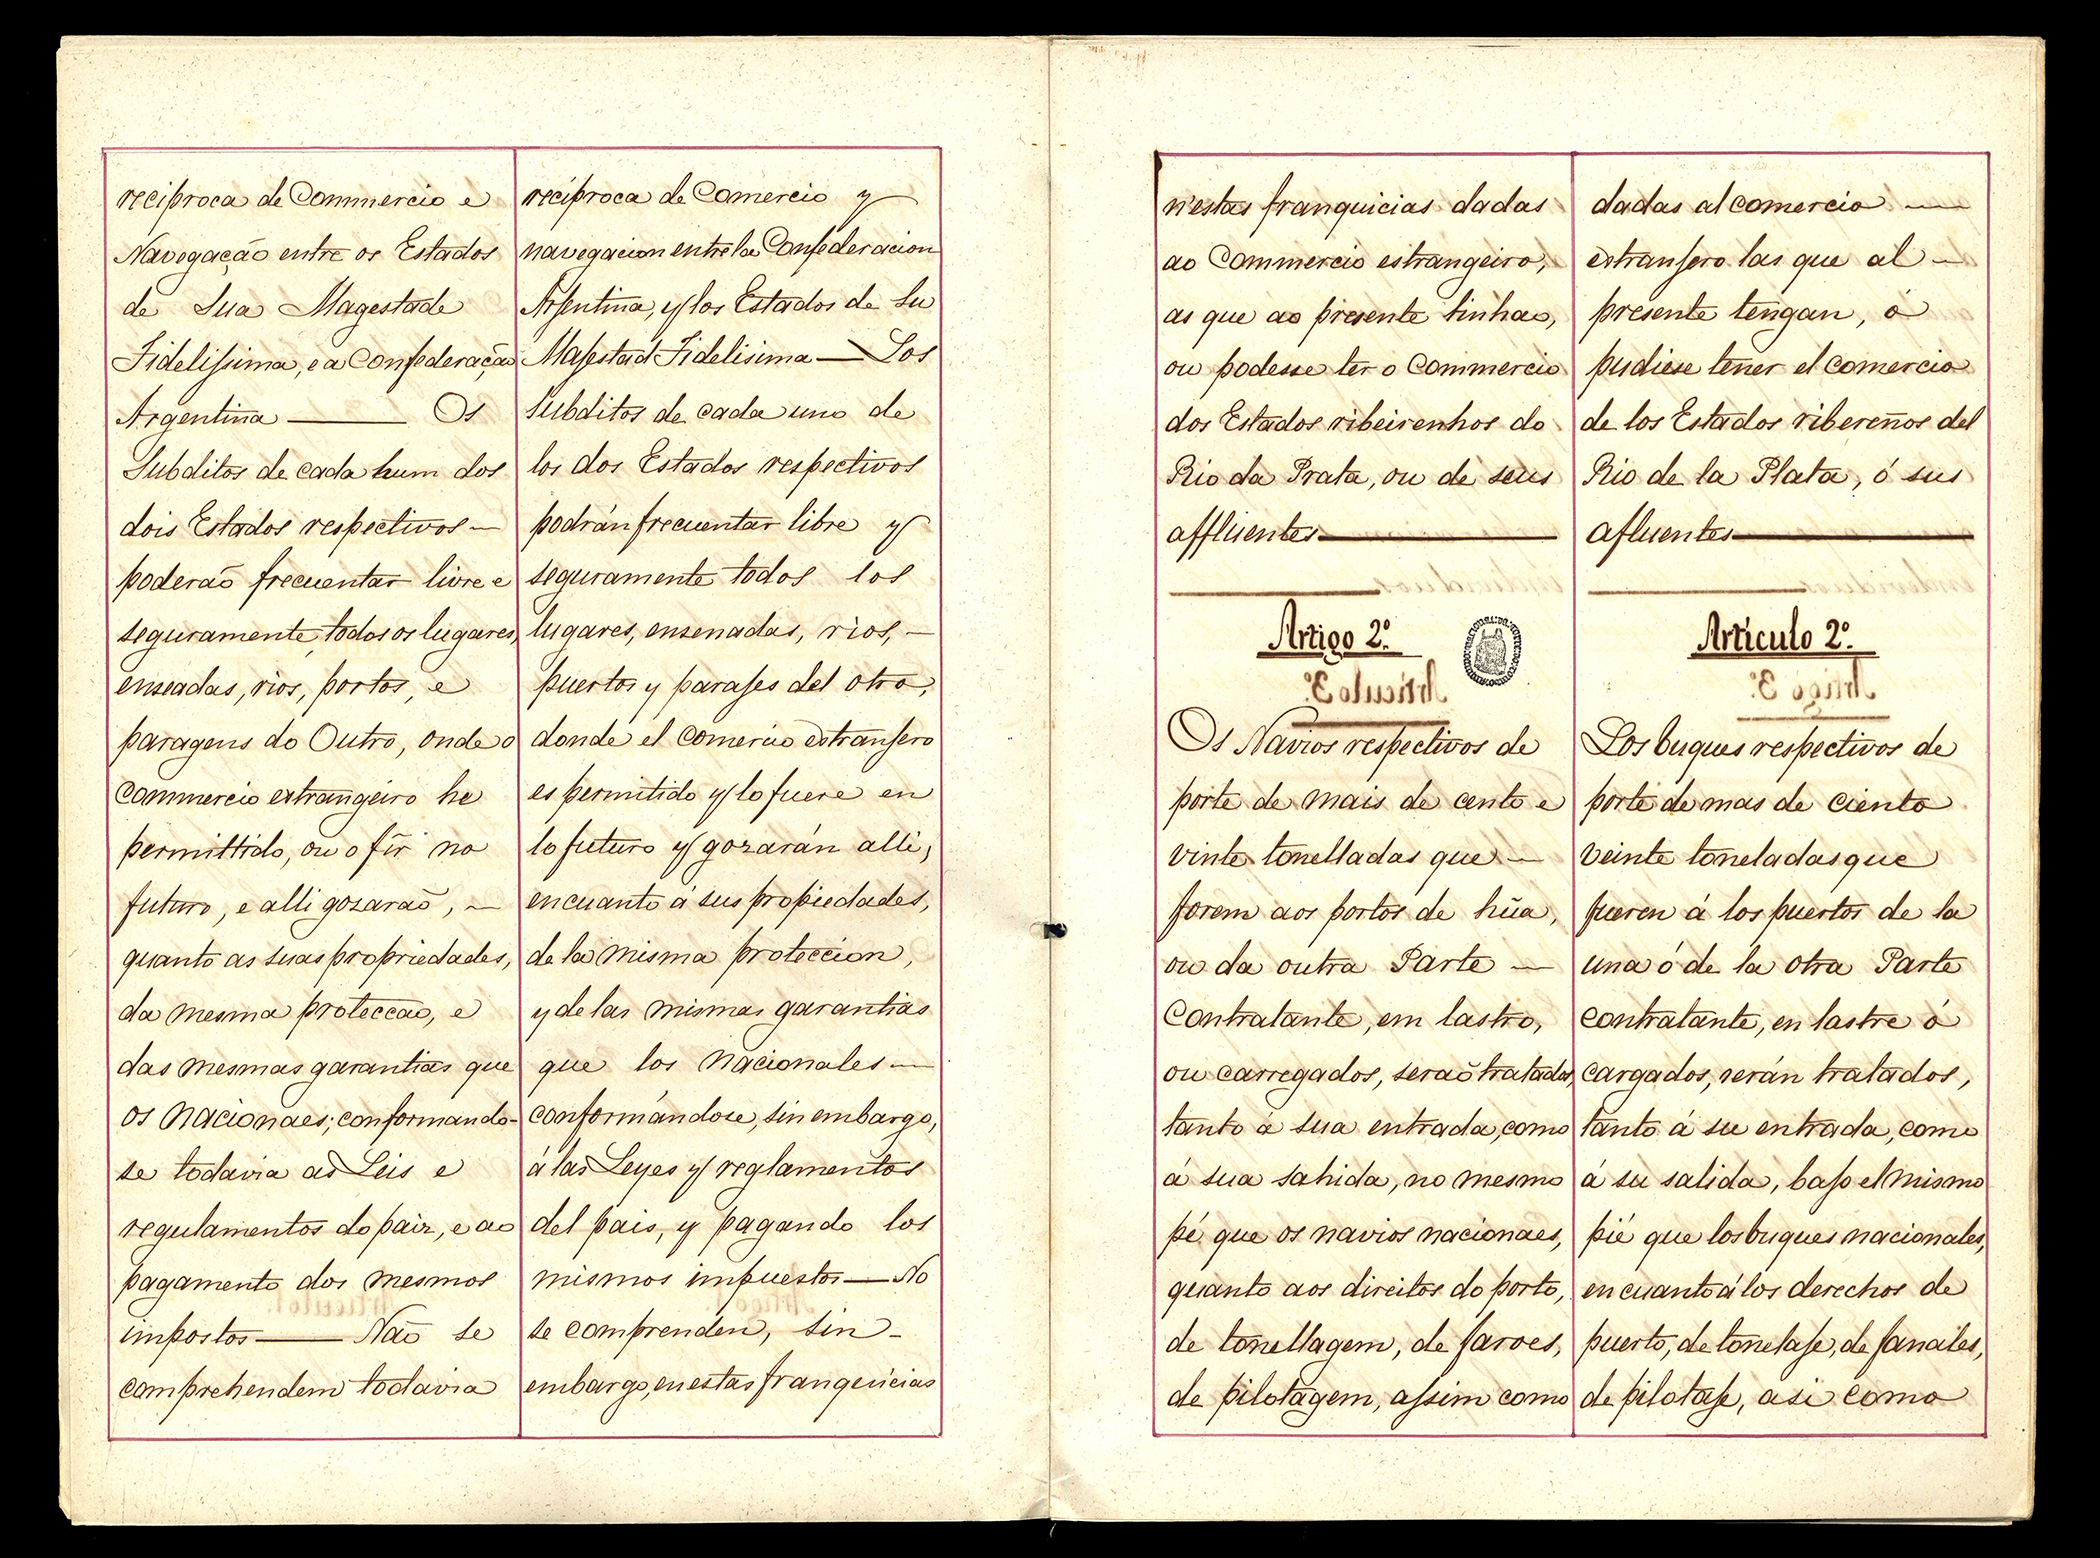 reciproca de Commercio e
Navegação entre os Estados
de Sua Magestade
Fidelissima, e a Confederação
Argentina — Os
Subditos de cada hum dos
dois Estados respectivos —
poderaõ frecuentar livre e
seguramente, todos os lugares,
enseadas, rios, portos, e
paragens do Outro, onde o
Commercio estrangeiro he
permittido, ou o fôr no
futuro, e alli gozaraõ, —
quanto as suas propriedades,
da mesma protecçaõ, e
das mesmas garantias que
os Nacionaes; conformando-
se todavia as Leis e
regulamentos do paiz, e ao
pagamento dos mesmos
impostos — Naõ se
comprehendem todavia
reciproca de Comercio y
navegacion entre la Confederacion
Arjentina, y los Estados de Su
Majestad Fidelisima — Los
subditos de cada uno de
los dos Estados respectivos
podrán frecuentar libre y
seguramente todos los
lugares, ensenadas, rios, —
puertos y parajes del otro,
donde el comercio estranjero
es permitido y lo fuere en
lo futuro y gozarán alli,
encuanto á sus propiedades,
de la misma proteccion,
y de las mismas garantias
que los nacionales —
conformándose, sin embargo,
á las Leyes y reglamentos
del pais, y pagando los
mismos impuestos — No
se comprenden, sin-
embargo, en estas franquicias
n'estas franquicias dadas
ao Commercio estrangeiro,
as que ao presente tinhao,
ou podesse ter o Commercio
dos Estados ribeirenhos do
Rio da Prata, ou de seus
affluentes —
Artigo 2º.
Os Navios respectivos de
porte de mais de cento e
vinte tonelladas que —
forem aos portos de hũa,
ou da outra Parte —
Contratante, em lastro,
ou carregados, seraõ tratados,
tanto á sua entrada, como
á sua sahida, no mesmo
pé que os navios nacionaes,
quanto aos direitos do porto,
de tonellagem, de faroes,
de pilotagem, assim como
dadas al comercio —
estranjero las que al —
presente tengan, ó
pudiese tener el comercio
de los Estados ribereños del
Rio de la Plata, ó sus
afluentes —
Artículo 2º.
Los buques respectivos de
porte de mas de ciento
veinte toneladas que
fueren á los puertos de la
una ó de la otra Parte
contratante, en lastre ó
cargados, serán tratados,
tanto á su entrada, como
á su salida, bajo el mismo
pié que los buques nacionales,
en cuanto á los derechos de
puerto, de tonelaje, de fanales,
de pilotaje, asi como